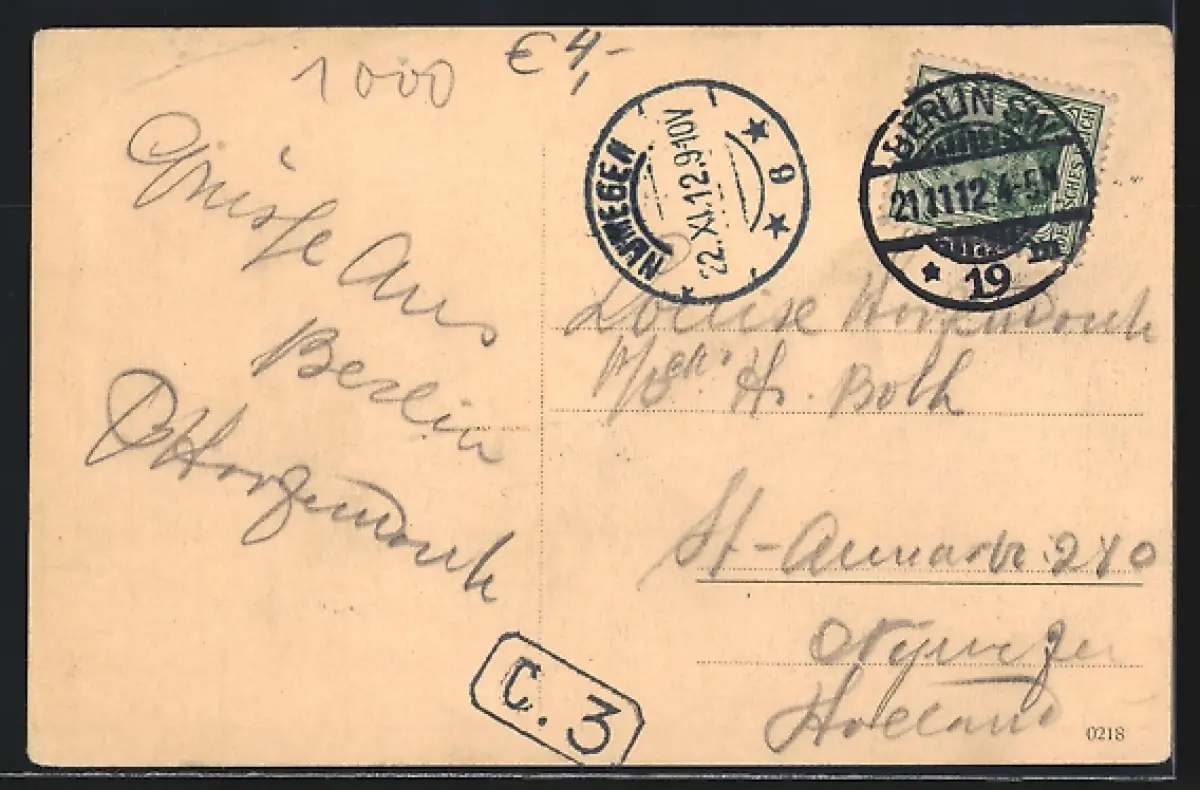 1000
€ 4,-
NIJMEGEN
22.XI.12.9-10V
9
BERLIN SW
21.11.12.4-5N
* 19 m
Grüsse Aus
Berlin
Louise
H. Both
St-Annastr. 280
Nijmegen
Holland
C. 3
0218